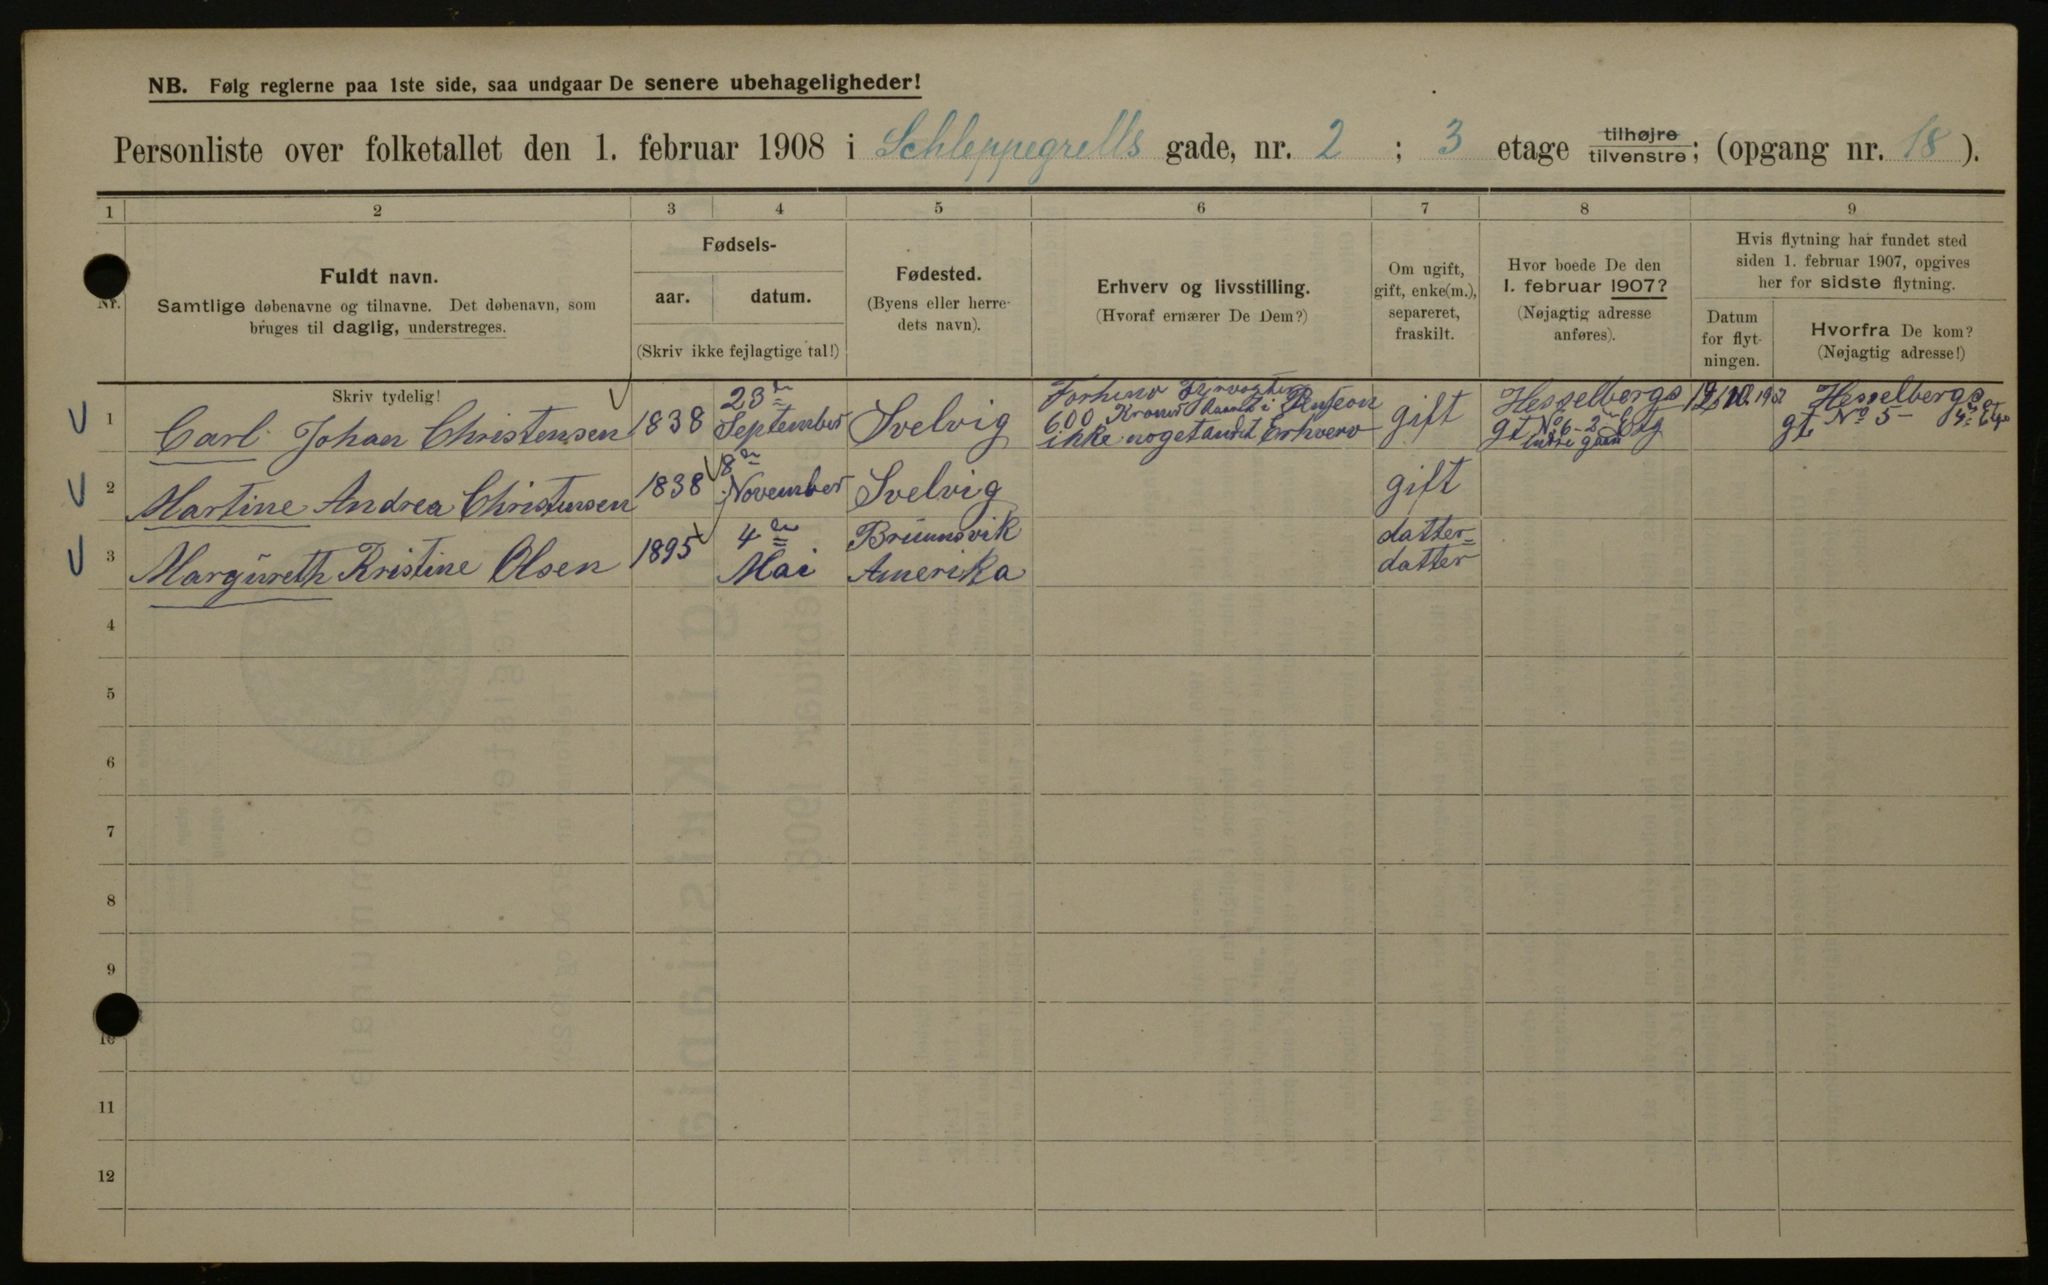 NB. Følg reglerne paa 1ste side, saa undgaar De senere ubehageligheder!
Personliste over folketallet den 1. februar 1908 i Schleppegrells gade, nr. 2 ; 3 etage tilhøjre/tilvenstre; (opgang nr. 18 ).
1 2 3 4 5 6 7 8 9
Nr.
Fuldt navn.
Samtlige døbenavne og tilnavne. Det døbenavn, som
bruges til daglig, understreges.
Skriv tydelig!
Fødsels-
aar. datum.
(Skriv ikke fejlagtige tal!)
Fødested.
(Byens eller herre-
dets navn).
Erhverv og livsstilling.
(Hvoraf ernærer De Dem?)
Om ugift,
gift, enke(m.),
separeret,
fraskilt.
Hvor boede De den
1. februar 1907?
(Nøjagtig adresse
anføres).
Hvis flytning har fundet sted
siden 1. februar 1907, opgives
her for sidste flytning.
Datum
for flyt-
ningen.
Hvorfra De kom?
(Nøjagtig adresse!)
1
Carl Johan Christensen
1838
23de
September
Svelvig
600 Kroner
ikke noget andet Erhverv
gift
Hesselbergs
gt No 6 - 2
Hesselbergs
gt No 5
2
Martine Andrea Christensen
1838
8de
November
Svelvig
gift
3
Margureth Kristine Olsen
1895
4de
Mai
Amerika
datter-
datter
4
5
6
7
8
9
10
11
12